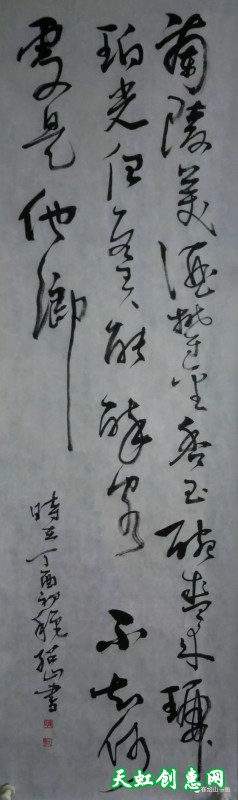 蘭陵美酒鬱金香玉碗盛来琥
珀光但使主人能醉客不知何
處是他鄉
時在丁酉初穐書
天虹创意网